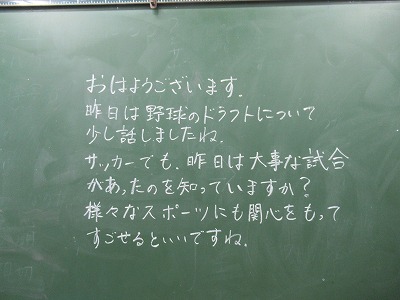 おはようございます.
昨日は野球のドラフトについて
少し話しましたね.
サッカーでも、昨日は大事な試合
があったのを知っていますか?
様々なスポーツにも関心をもって
すごせるといいですね.